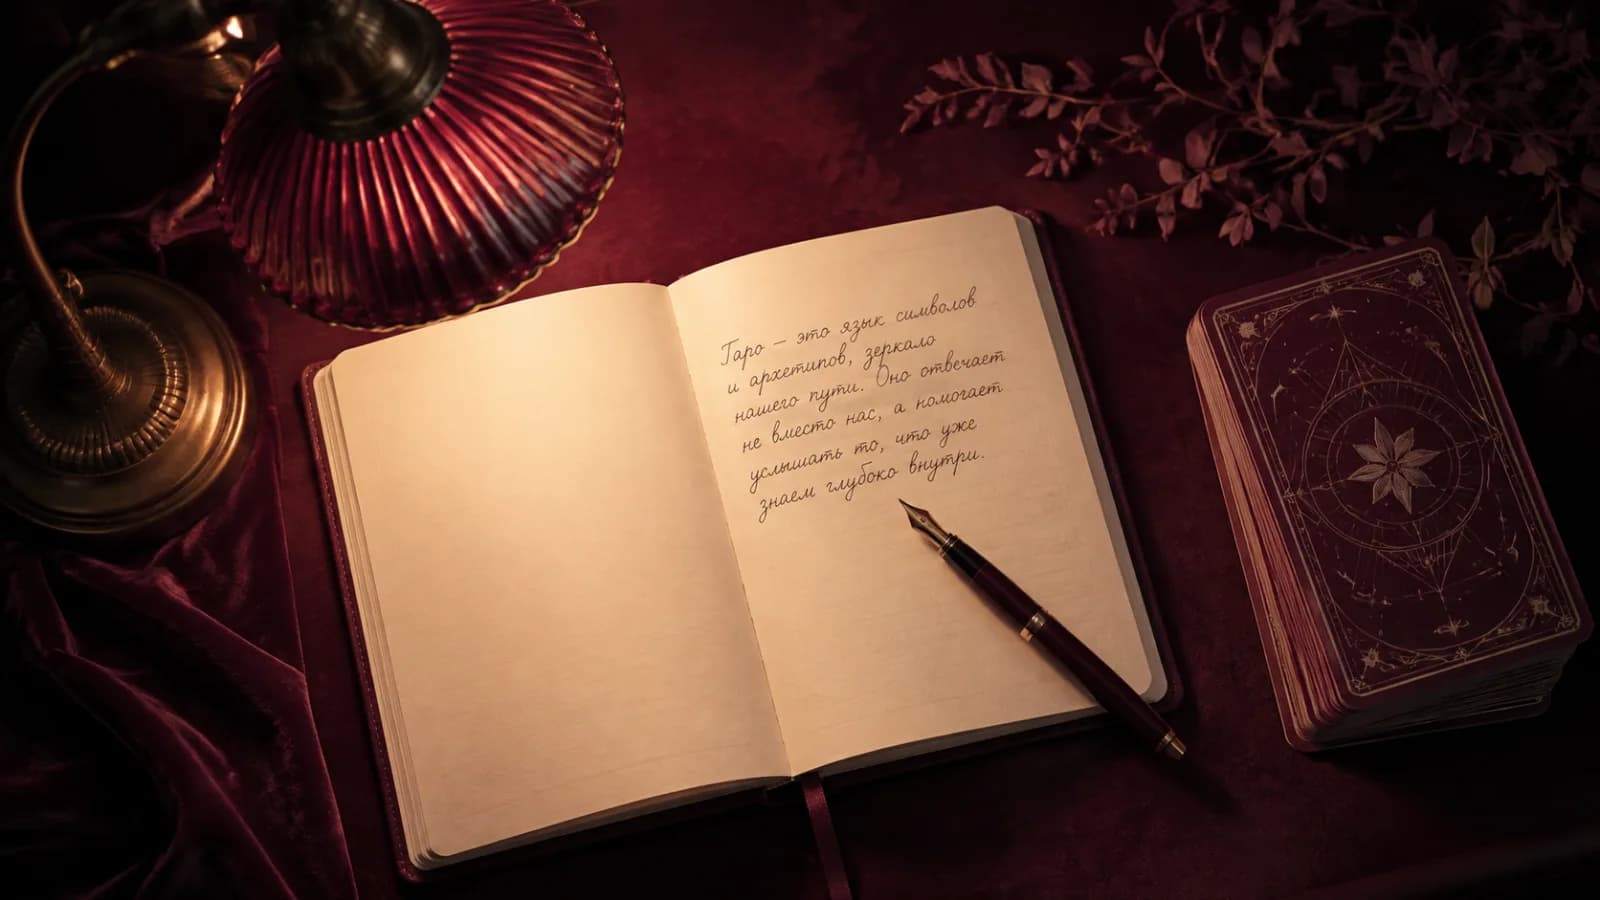 Таро — это язык символов
и архетипов, зеркало
нашего пути. Оно отвечает
не вместо нас, а помогает
услышать то, что уже
знаем глубоко внутри.